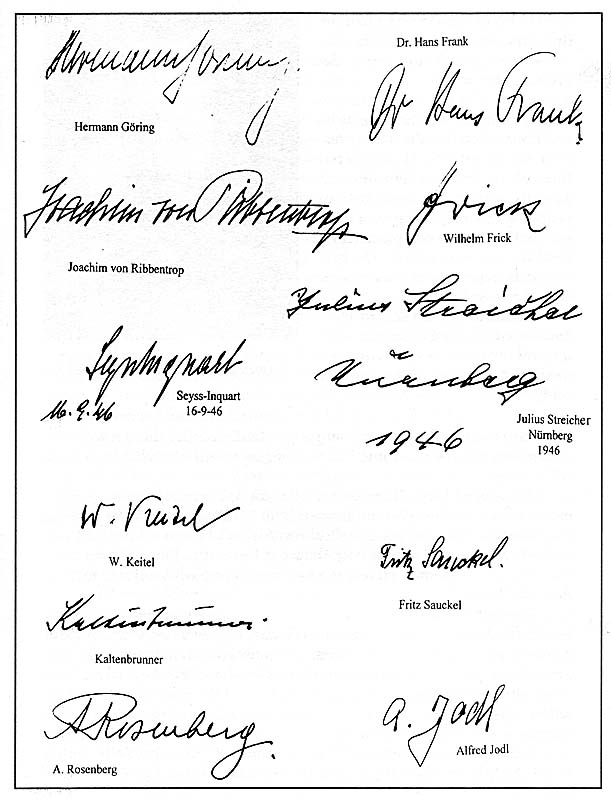 Hermann Göring
Hermann Göring
Dr. Hans Frank
Dr Hans Frank
Joachim von Ribbentrop
Joachim von Ribbentrop
Frick
Wilhelm Frick
Seyss-Inquart
16.9.46
Seyss-Inquart
16-9-46
Julius Streicher
Nürnberg
1946
Julius Streicher
Nürnberg
1946
W. Keitel
W. Keitel
Fritz Sauckel.
Fritz Sauckel
Kaltenbrunner.
Kaltenbrunner
ARosenberg.
A. Rosenberg
A. Jodl
Alfred Jodl